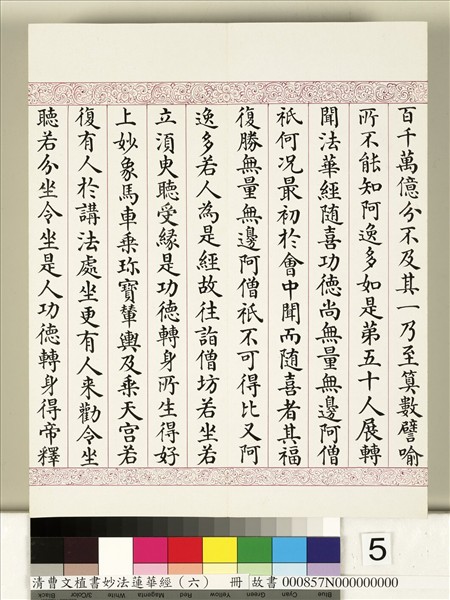 百千萬億分不及其一乃至算數譬喻
所不能知阿逸多如是第五十人展轉
聞法華經隨喜功德尚無量無邊阿僧
祇何况最初於會中聞而隨喜者其福
復勝無量無邊阿僧祇不可得比又阿
逸多若人為是經故往詣僧坊若坐若
立須臾聽受緣是功德轉身所生得好
上妙象馬車乘珍寶輦輿及乘天宮若
復有人於講法處坐更有人来勸令坐
聽若分坐令坐是人功德轉身得帝釋
5
清曹文植書妙法蓮華經（六） 冊 故書 000857N000000000
Black 3/Color White Magenta Red Yellow Green Cyan Blue